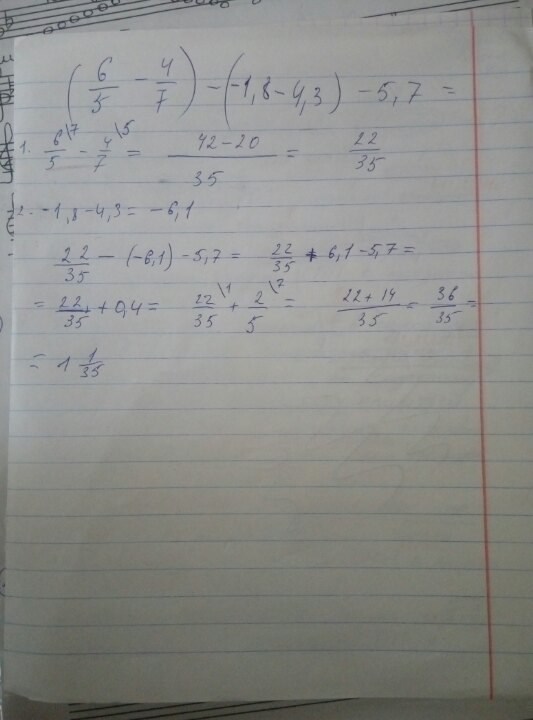 (6/5 - 4/7) - (-1,8 - 4,3) - 5,7 =
1. 6\7/5 - 4\5/7 = 42-20/35 = 22/35
2. -1,8-4,3 = -6,1
22/35 - (-6,1) - 5,7 = 22/35 + 6,1 - 5,7 =
= 22/35 + 0,4 = 22\1/35 + 2\7/5 = 22+14/35 = 36/35 =
= 1 1/35